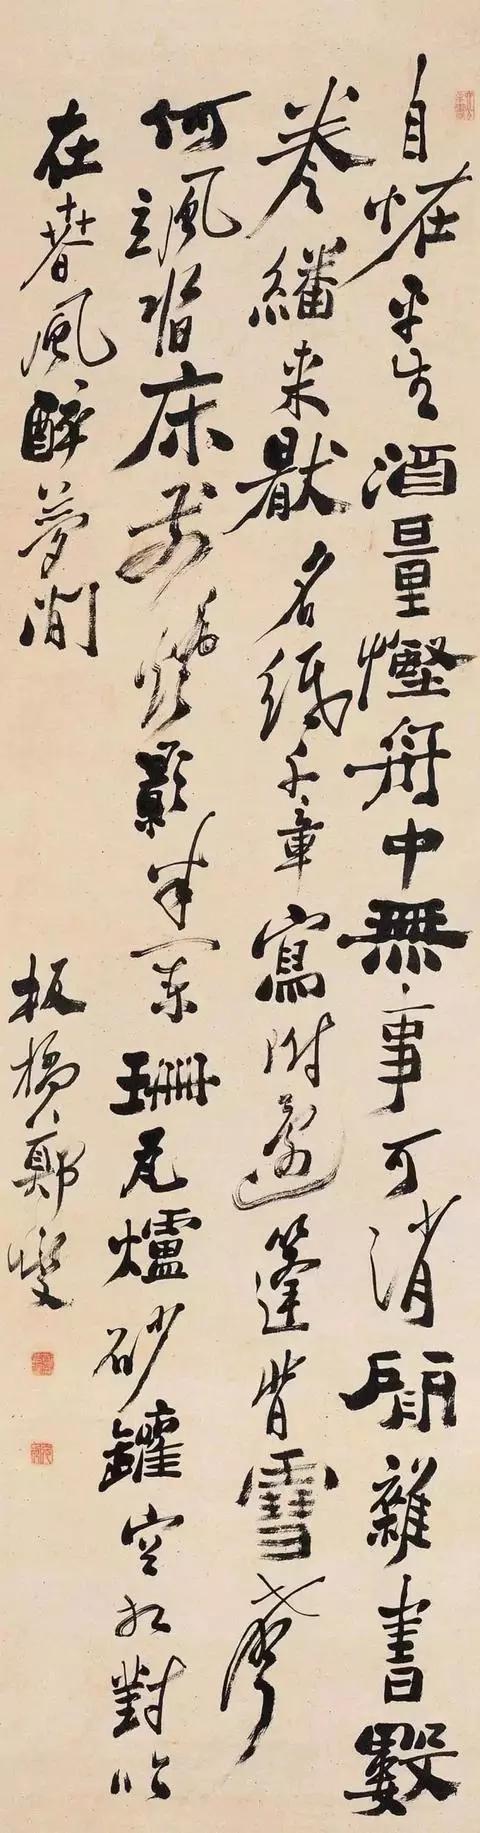 自恠平生酒量慳舟中無事可消閒雜書數
卷繙来猒名紙千章寫附還篷背雪聲
何颯沓床前燭影半闌珊瓦爐砂罐空相對似
在春風醉夢間
板橋鄭燮